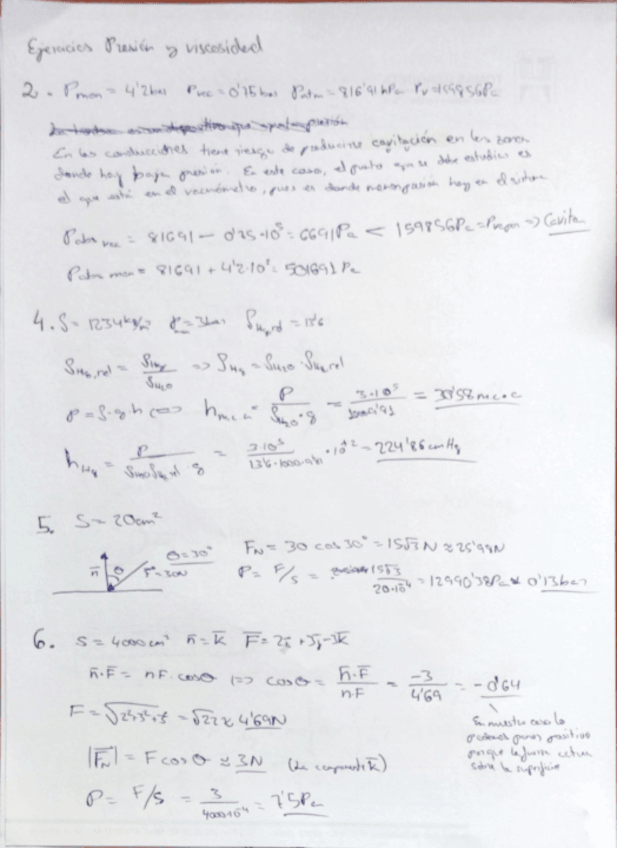 Ejercicios Presión y viscosidad
2.- Pman = 4'2bar Pvac = 0'75bar Patm = 816'91hPa Pv = 159856Pa
En las conducciones tiene riesgo de producirse cavitación en las zonas
donde hay baja presión. En este caso, el punto que se debe estudiar es
el que está en el vacuómetro, pues es donde menor presión hay en el sistema
Pabs vac = 81691 - 0'75·10⁵ = 6691Pa < 159856Pa = Pvapor => Cavita
Pabs man = 81691 + 4'2·10⁵ = 501691 Pa
4. S = 1234kg/m³ P = 3bar SHg,rel = 13'6
SHg,rel = SHg/SH2O => SHg = SH2O · SHg,rel
P = S·g·h <=> hm.c.a = P/SH2O·g = 3·10⁵/1000·9'81 = 30'58 m.c.a
hHg = P/SH2O·SHg,rel·g = 3·10⁵/13'6·1000·9'81 · 10² = 224'86 cmHg
5. S = 20cm²
n̄ θ θ = 30° F̄ = 30N FN = 30 cos 30° = 15√3 N ≈ 25'98N
P = F/S = 15√3/20·10⁻⁴ = 12990'38Pa ≈ 0'13bar
6. S = 4000cm² n̄ = k̄ F̄ = 2ī + 3j̄ - 3k̄
n̄·F̄ = nF·cosθ <=> cosθ = n̄·F̄/nF = -3/4'69 = -0'64
F = √2²+3²+3² = √22 ≈ 4'69N
En nuestro caso lo
podemos poner positivo
porque la fuerza actúa
sobre la superficie
|F̄N| = F cosθ ≈ 3N (la componente k̄)
P = F/S = 3/4000·10⁻⁴ = 7'5Pa